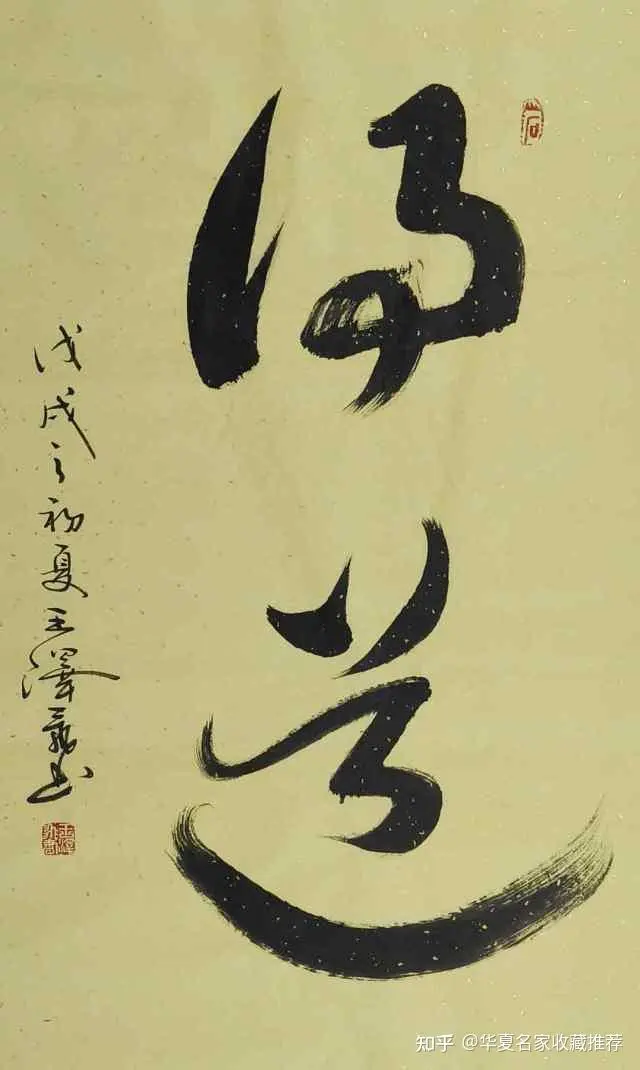 得道
戊戌之初夏王澤義书
知乎 @华夏名家收藏推荐